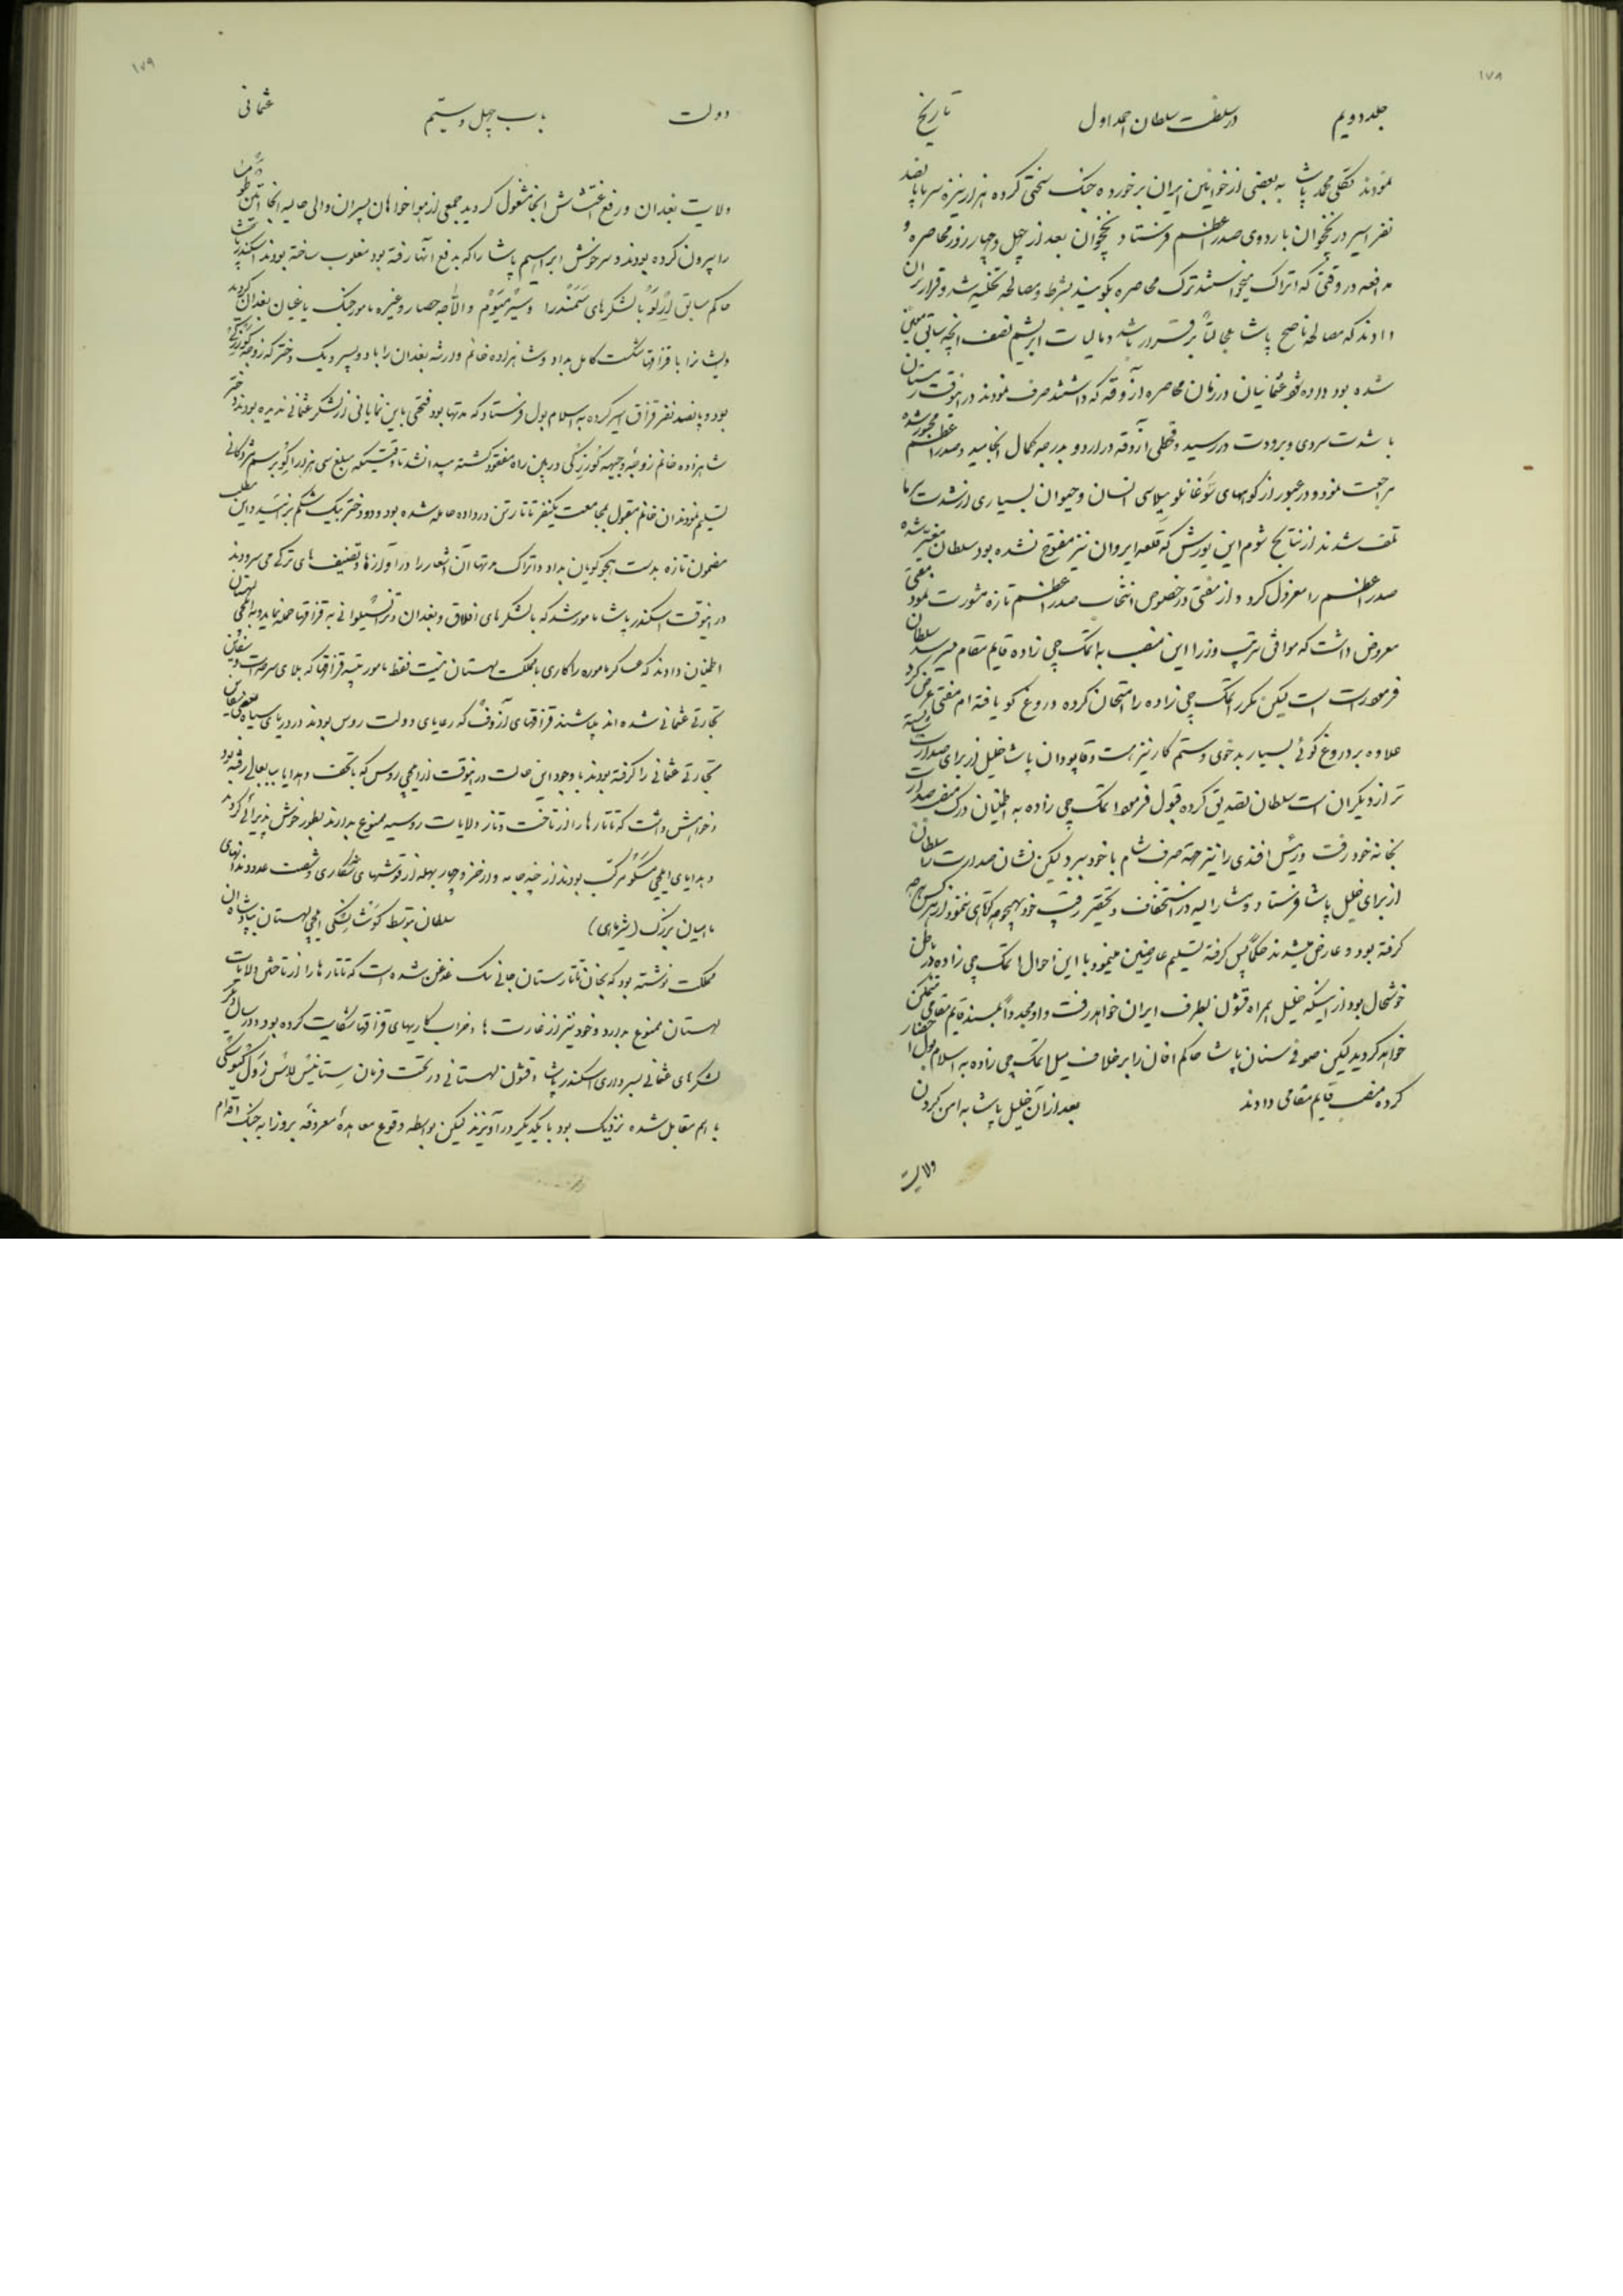 ۱۷۸
جلد دویم در سلطنت سلطان احمد اول تاریخ
نمودند تکلی محمد پاشا به بعضی از خوانین ایران برخورده جنک سختی کرده هزار نیزه سر با پانصد
نفر اسیر در نخجوان باردوی صدر اعظم فرستاد نخجوان بعد از چهل و چهار روز محاصره و
مدافعه در وقتی که اتراک میخواستند ترک محاصره بکویند بشرط مصالحه تخلیه شد و قرار بران
دادند که مصالحه ناصح پاشا بحالتاً برقرار باشد و مالیات ابریشم نصف آنچه سابق معین
شده بود داده شود عثمانیان در زمان محاصره آذوقه که داشتند صرف نمودند در انوقت زمستان
با شدت سردی و برودت در رسید و قحطی آذوقه در اردو بدرجه کمال انجامید و صدر اعظم مجبور شده
مراجعت نمود و در عبور از کوههای سوغانلو میلاسی انسان و حیوان بسیاری از شدت سرما
تلف شدند از نتایج شوم این یورش که قلعه ایروان نیز مفتوح نشده بود سلطان متغیر شده
صدر اعظم را معزول کرد و از مفتی در خصوص انتخاب صدر اعظم تازه مشورت نمود مفتی
معروض داشت که موافق ترتیب وزرا این منصب به اتمک چی زاده قایم مقام میرسد سلطان
فرمود راست است لیکن مکرر اتمک چی زاده را امتحان کرده دروغ کو یافته ام مفتی عرض کرد
علاوه بر دروغ کوئی بسیار بدخوی و ستم کار نیز هست و قاپودان پاشا خلیل از برای صدارت شایسته
تر از دیکران است سلطان تصدیق کرده قبول فرمود اتمک چی زاده به اطمینان درک منصب صدارت
بخانه خود رفت و رئیس افندی را نیز جهة صرف شام با خود ببرد لیکن نشان صدارت را سلطان
از برای خلیل پاشا فرستاد و مشارالیه در استخفاف و تحقیر رقیب خود بهیچوجه کوتاهی ننمود از هر کس هر چه
کرفته بود و عارض میشدند حکماً پس کرفته تسلیم عارضین مینمود با این احوال اتمک چی زاده در باطن
خوشحال بود از اینکه خلیل همراه قشون بطرف ایران خواهد رفت و او مجدداً بمسند قایم مقامی متمکن
خواهد کردید لیکن صوفی سنان پاشا حاکم اخان را برخلاف میل اتمک چی زاده به اسلامبول احضار
کرده منصب قایم مقامی دادند بعد از آن خلیل پاشا به امن کردن
ولایت
۱۷۹
دولت باب چهل و ستیم عثمانی
ولایت بغدان و رفع اغتشاش انجا مشغول کردید جمعی از هوا خواهان پسران والی حالیه انجا
را بیرون کرده بودند و سرخوش ابراهیم پاشا را که بدفع آنها رفته بود مغلوب ساخته بودند اسکندر پاشا
حاکم سابق بالشکرهای سمندرا و والاجه حصار و غیره مامور جنک یاغیان بغدان کردید
و قزاقها شکست کامل بداد و شاهزاده خانم وارثه بغدان را با دو پسر و یک دختر که زوجه
بود و پانصد نفر قزاق اسیر کرده به اسلامبول فرستاد که مدتها بود فتحی باین نمایانی از لشکر عثمانی ندیده بودند دختر
شاهزاده خانم زوجۀ وجیهه در بین راه مفقود کشته پیدا نشد تا وقتیکه مبلغ سی هزار بر سم مژدکانی
تسلیم نمودند آن خانم بقول بمجامعت یکنفر تاتار تن در داده حامله شده بود و دو دختر بیک شکم بزائید و این مطلب
مضمون تازه بدست هجو کویان بداد و اتراک مدتها آن اشعار را در آوازها و تصنیف های ترکی می سرودند
در انوقت اسکندر پاشا مامور شد که بالشکرهای افلاق و بغدان و ترانسیلوانی به قزاقها حمله نماید و به ایلچی لهستان
اطمینان دادند که عساکر ماموره را کاری با مملکت لهستان نیست فقط مامور تنبیه قزاقها که بلای سرحدات و سفاین
تجارتی عثمانی شده اند میباشند قزاقهای آزوف که رعایای دولت روس بودند در دریای سیاه بعضی سفاین
تجارتی عثمانی را کرفته بودند با وجود این حالت در انوقت از ایلچی روس که با تحف و هدایا بباب عالی رفته بود
و خواهش داشت که تاتارها را از تاخت و تاز ولایات روسیه ممنوع بدارند بطور خوش پذیرائی کردید
و هدایای ایلچی مسکو مرکب بودند از و از خز و چهار بهله از قوشهای شکاری و شصت عدد دندانهای
ماهیان بزرک (شیرماهی) سلطان بتوسط ایلچی لهستان بپادشاه ان
مملکت نوشته بود که بخان تاتارستان جانی بک غدغن شده است که تاتارها را از تاختن ولایات
لهستان ممنوع بدارد و خود نیز از غارت ها و خراب کاریهای قزاقها شکایت کرده بود و در سال دیکر
لشکرهای عثمانی بسرداری اسکندر پاشا و قشون لهستانی در تحت فرمان
با هم مقابل شده نزدیک بود با یکدیکر در آویزند لیکن بواسطه وقوع معاهدۀ معروفه بروزا به جنک اقدام